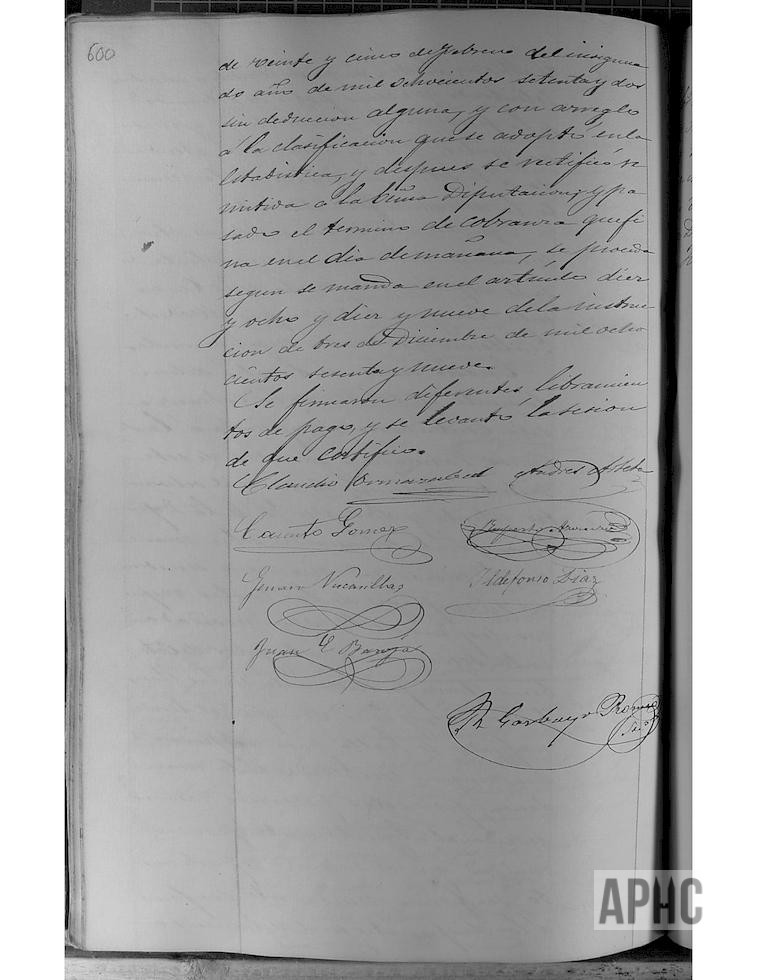 600
de veinte y cinco de febrero del insinua
do año de mil ochocientos setenta y dos
sin deduccion alguna, y con arreglo
a la clasificacion que se adoptó en la
Estadistica, y despues se rectificó re
mitida a la Exma Diputacion; y pa
sado el termino de cobranza que fi
na en el dia de mañana, se proceda
segun se manda en el artículo diez
y ocho y diez y nueve de la instruc
cion de tres de Diciembre de mil ocho
cientos sesenta y nueve.
Se firmaron diferentes libramien
tos de pago, y se levantó la sesion
de que certifico.
Claudio Ormazabal Andres Arteta
Casinto Gomez
Genaro Ildefonso Diaz
Juan E Baroja
R Garbayo
Srio
APHC